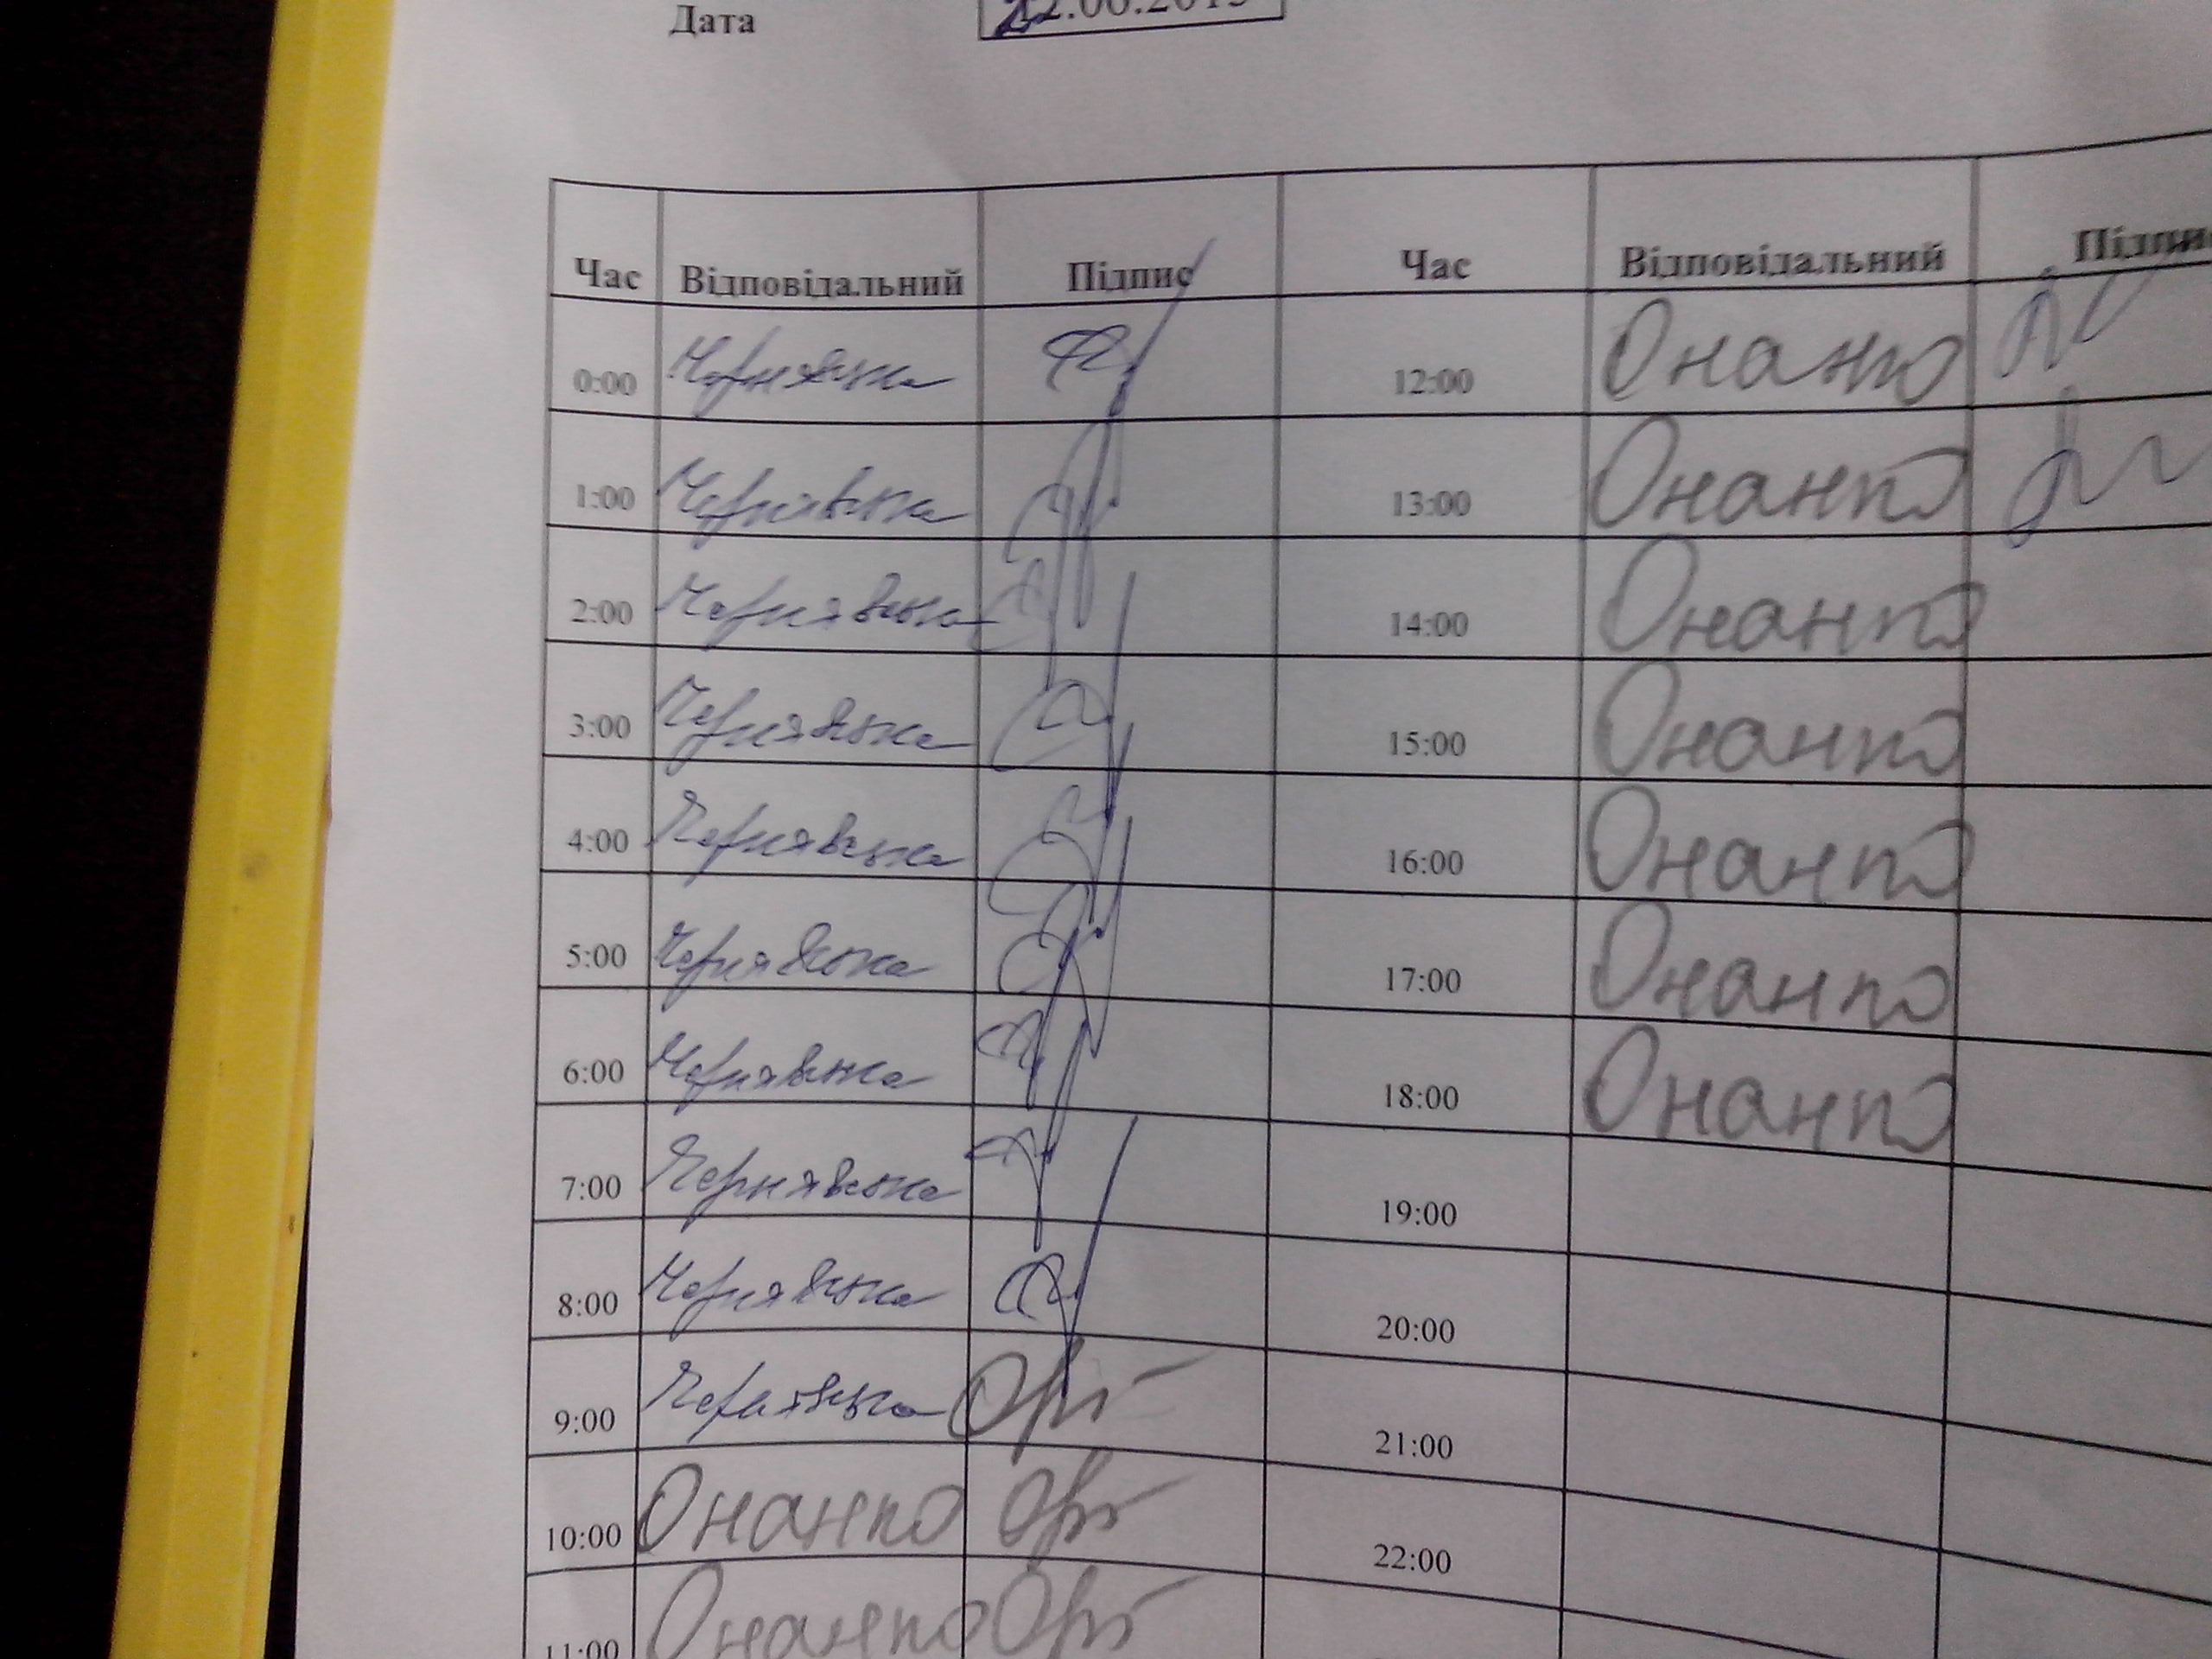 Дата 22.06.2015
Час Відповідальний Підпис Час Відповідальний Підпис
0:00 Чернявська 12:00 Онанко
1:00 Чернявська 13:00 Онанко
2:00 Чернявська 14:00 Онанко
3:00 Чернявська 15:00 Онанко
4:00 Чернявська 16:00 Онанко
5:00 Чернявська 17:00 Онанко
6:00 Чернявська 18:00 Онанко
7:00 Чернявська 19:00
8:00 Чернявська 20:00
9:00 Чернявська 21:00
10:00 Онанко 22:00
11:00 Онанко